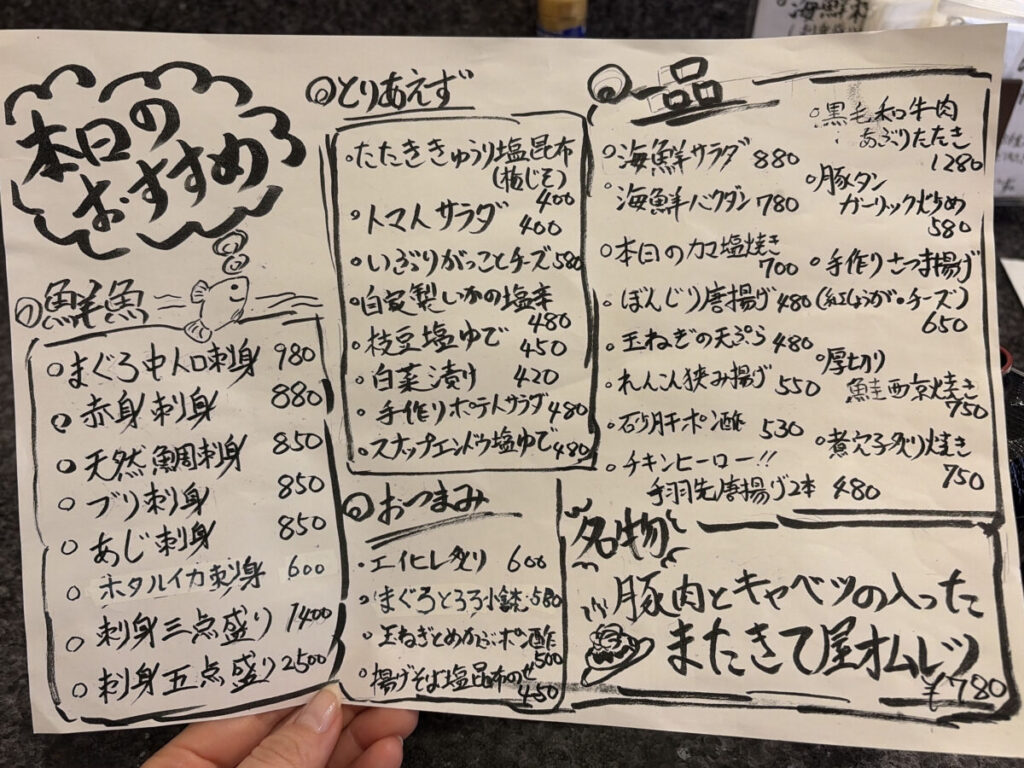 本日の
おすすめ
◎鮮魚
○まぐろ中トロ刺身 980
○赤身刺身 880
○天然鯛刺身 850
○ブリ刺身 850
○あじ刺身 850
○ホタルイカ刺身 600
○刺身三点盛り 1400
○刺身五点盛り 2500
◎とりあえず
○たたききゅうり塩昆布
(梅じそ) 400
○トマトサラダ 400
○いぶりがっことチーズ 580
○自家製いかの塩辛 480
○枝豆塩ゆで 450
○白菜漬り 420
○手作りポテトサラダ 480
○スナップエンドウ塩ゆで 480
◎おつまみ
○エイヒレ炙り 600
○まぐろとろろ小鉢 580
○玉ねぎとめかぶポン酢 500
○揚げそば塩昆布のせ 450
◎一品
○海鮮サラダ 880
○海鮮バクダン 780
○本日のカマ塩焼き 700
○ぼんじり唐揚げ 480
○玉ねぎの天ぷら 480
○れんこん狭み揚げ 550
○砂肝ポン酢 530
○チキンヒーロー!!
手羽先唐揚げ2本 480
○黒毛和牛肉
あぶりたたき 1280
○豚タン
ガーリック炒め 580
○手作りさつま揚げ
(紅しょうが・チーズ) 650
○厚切り
鮭西京焼き 750
○煮穴子炙り焼き 750
名物
豚肉とキャベツの入った
またきて屋オムレツ
¥780
海鮮